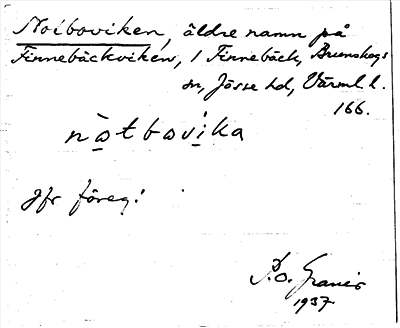 Noiboviken, äldre namn på
Finnebäckviken, i Finnebäck, Brunskogs
sn, Jösse hd, Värml. l.
166.
nɷ̀tbɷvìka
Jfr föreg!
P.O. Granér
1937.